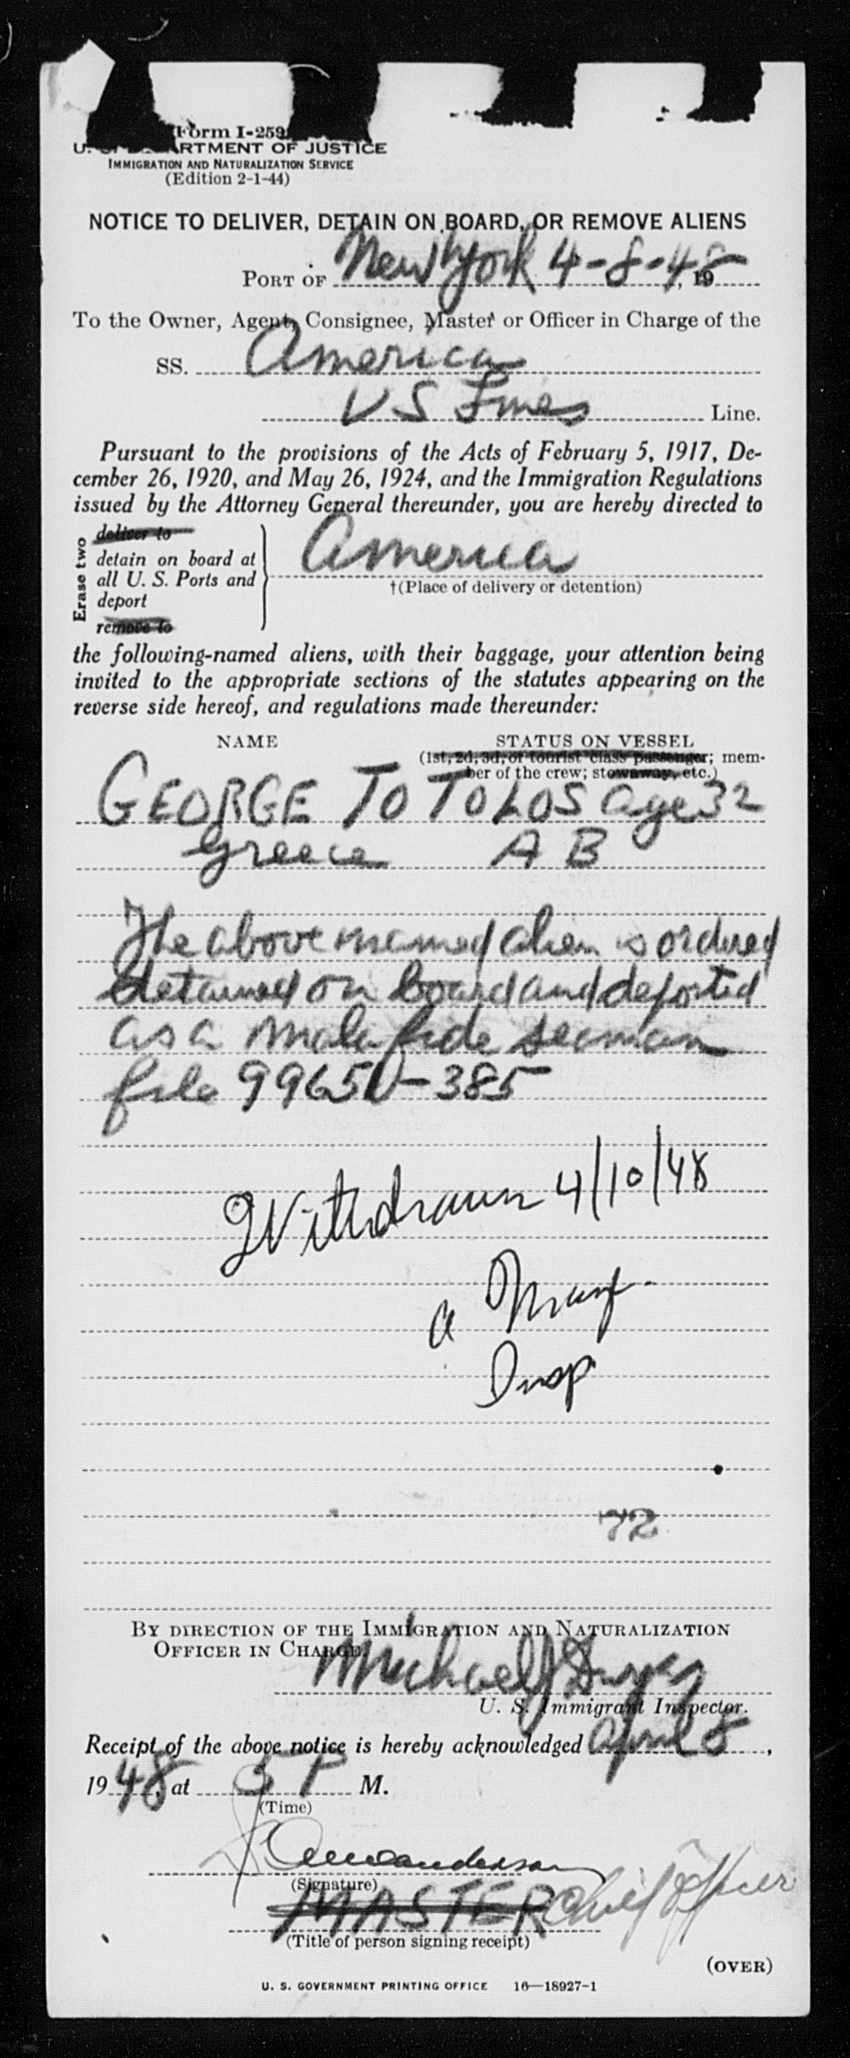 Form I-259
U. S. DEPARTMENT OF JUSTICE
IMMIGRATION AND NATURALIZATION SERVICE
(Edition 2-1-44)
NOTICE TO DELIVER, DETAIN ON BOARD, OR REMOVE ALIENS
PORT OF New York 4-8-48, 19
To the Owner, Agent, Consignee, Master or Officer in Charge of the
SS. America
US Lines Line.
Pursuant to the provisions of the Acts of February 5, 1917, De-
cember 26, 1920, and May 26, 1924, and the Immigration Regulations
issued by the Attorney General thereunder, you are hereby directed to
Erase two
deliver to
detain on board at
all U. S. Ports and
deport
remove to
America
†(Place of delivery or detention)
the following-named aliens, with their baggage, your attention being
invited to the appropriate sections of the statutes appearing on the
reverse side hereof, and regulations made thereunder:
NAME STATUS ON VESSEL
(1st, 2d, 3d, or tourist class passenger; mem-
ber of the crew; stowaway, etc.)
GEORGE TOTOLOS age 32
Greece A B
The above named alien is ordered
detained on board and deported
as a mala fide seaman
file 99650-385
Withdrawn 4/10/48
a
Insp.
72
BY DIRECTION OF THE IMMIGRATION AND NATURALIZATION
OFFICER IN CHARGE.
Michael J
U. S. Immigrant Inspector.
Receipt of the above notice is hereby acknowledged April 8,
1948, at 5 P M.
(Time)
(Signature)
MASTER Chief Officer
(Title of person signing receipt)
(OVER)
U. S. GOVERNMENT PRINTING OFFICE 16—18927-1